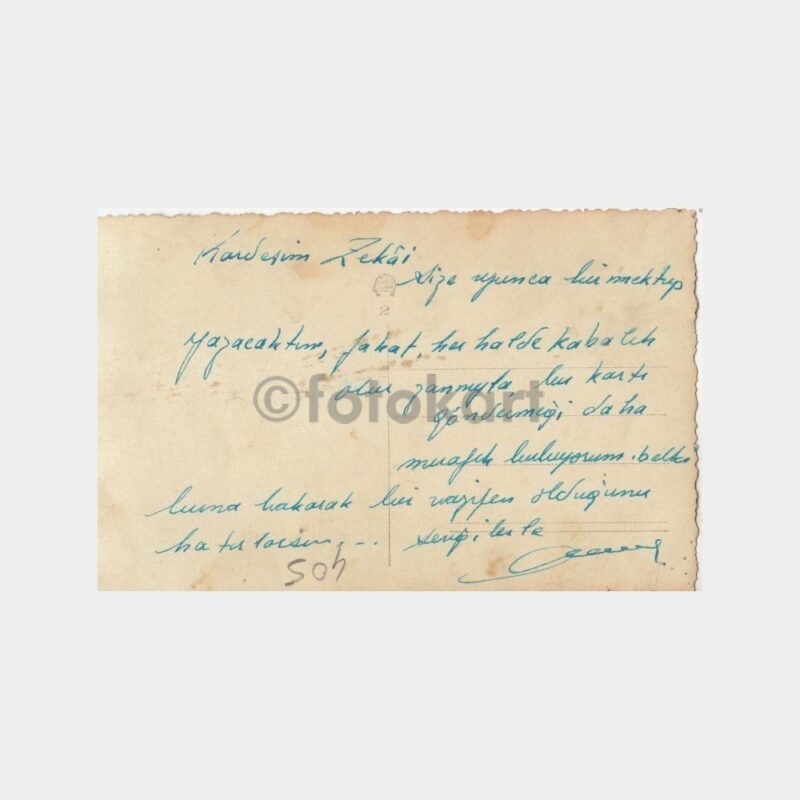 Kardeşim Zekâi
Size uzunca bir mektup
yazacaktım, fakat, her halde kabalık
olur zannıyla bu kartı
göndermiği daha
muafık buluyorum. belki
buna bakarak bir vazifen olduğunu
hatırlarsın...
sevgilerle
2
405
©fotokart